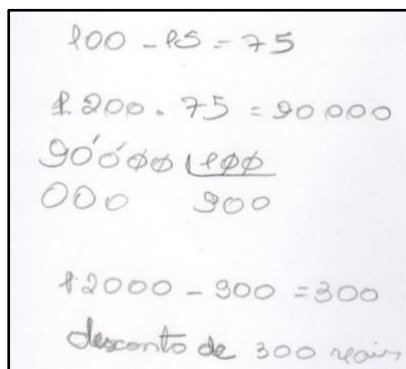 100 - 15 = 75
1200 . 75 = 90000
90000 100
000 900
12000 - 900 = 300
desconto de 300 reais